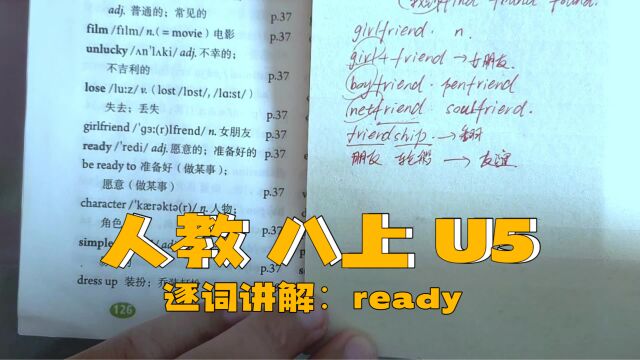 adj. 普通的；常见的
p.37
film /fɪlm/ n.(= movie) 电影
p.37
unlucky /ʌnˈlʌki/ adj. 不幸的；
不吉利的
p.37
lose /luːz/ v. (lost /lɒst/, /lɑːst/)
失去；丢失
p.37
girlfriend /ˈɡɜː(r)lfrend/ n. 女朋友
p.37
ready /ˈredi/ adj. 愿意的；准备好的
be ready to 准备好（做某事）；
愿意（做某事）
p.37
character /ˈkærəktə(r)/ n. 人物；
角色
simple
dress up 装扮；
126
find found found.
girlfriend. n.
girl + friend → 女朋友.
boyfriend. penfriend
netfriend. soulfriend.
friendship. →
朋友 → 友谊
人教 八上 U5
逐词讲解：ready